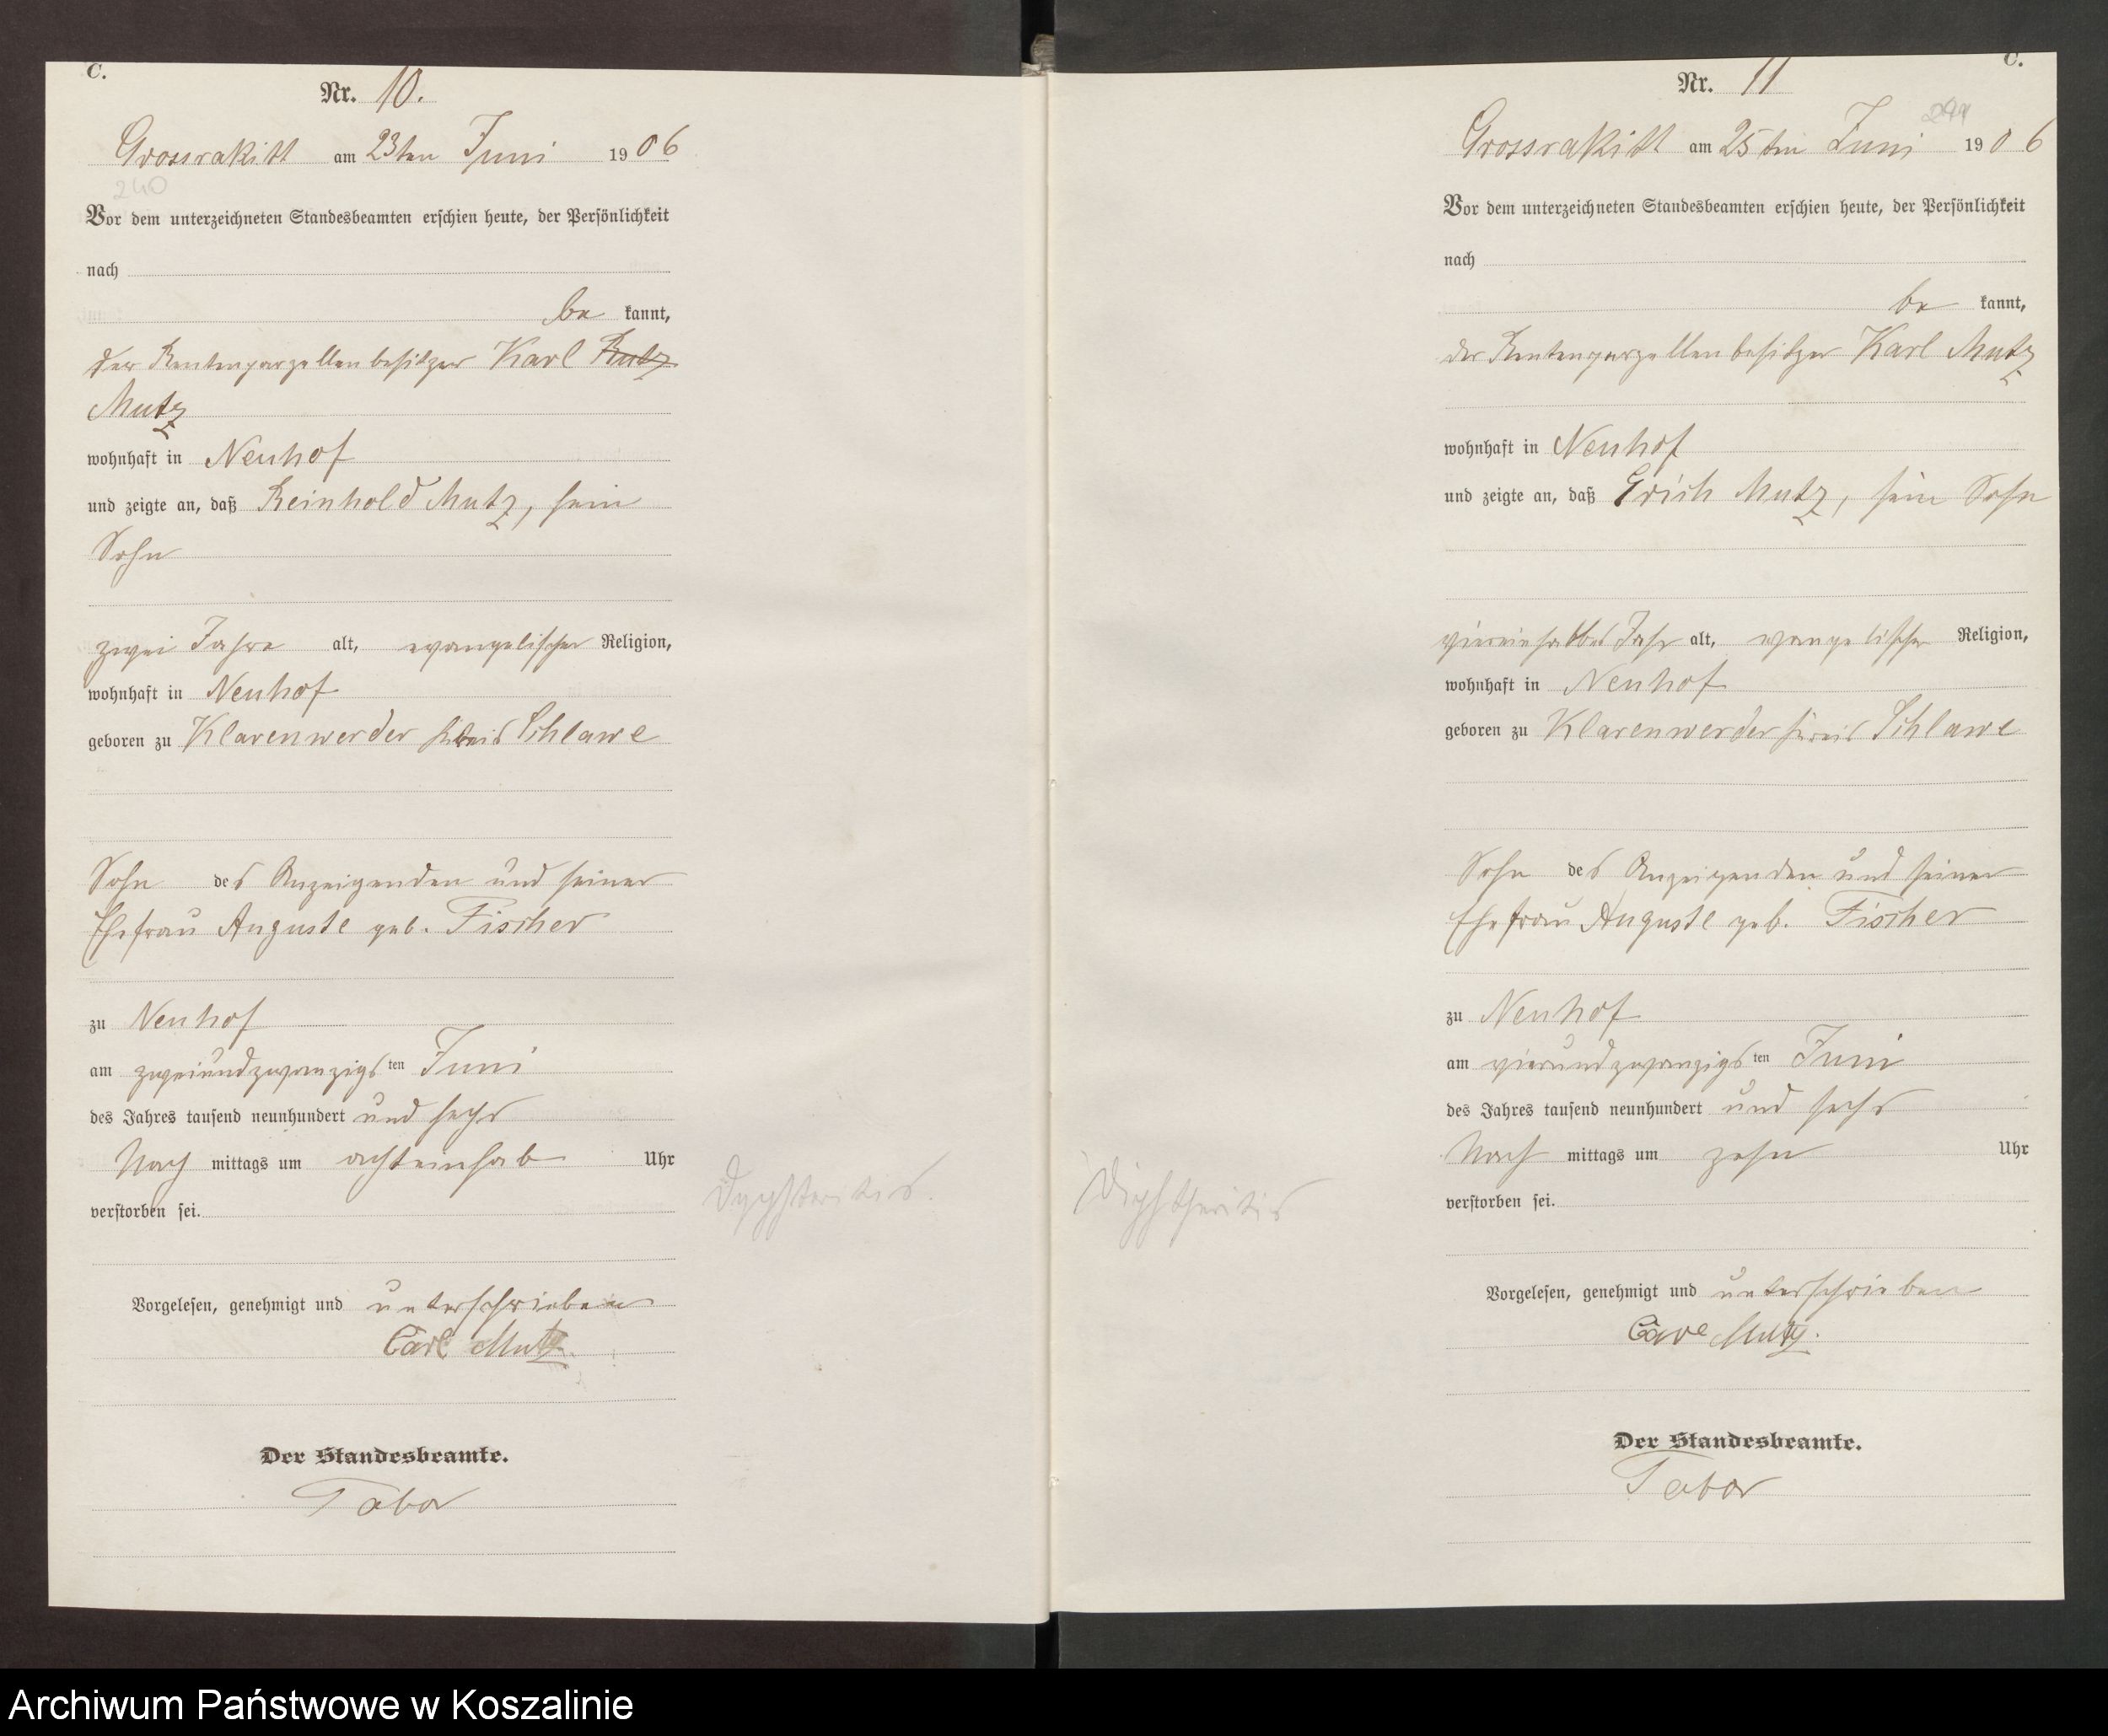 C.
Nr. 10.
Grossrakitt am 23ten Juni 1906
240
Vor dem unterzeichneten Standesbeamten erschien heute, der Persönlichkeit
nach
be kannt,
der Rentenparzellenbesitzer Karl Rutz
Mutz
wohnhaft in Neuhof
und zeigte an, daß Reinhold Mutz, sein
Sohn
zwei Jahre alt, evangelischer Religion,
wohnhaft in Neuhof
geboren zu Klarenwerder Kreis Schlawe
Sohn des Anzeigenden und seiner
Ehefrau Auguste geb. Fischer
zu Neuhof
am zweiundzwanzigsten Juni
des Jahres tausend neunhundert und sechs
Nach mittags um achteinhalb Uhr
verstorben sei.
Vorgelesen, genehmigt und unterschrieben
Carl Mutz.
Der Standesbeamte.
Tabor
C.
Nr. 11
Grossrakitt am 25ten Juni 1906
Vor dem unterzeichneten Standesbeamten erschien heute, der Persönlichkeit
nach
be kannt,
der Rentenparzellenbesitzer Karl Mutz
wohnhaft in Neuhof
und zeigte an, daß Erich Mutz, sein Sohn
viereinhalbes Jahr alt, evangelischer Religion,
wohnhaft in Neuhof
geboren zu Klarenwerder Kreis Schlawe
Sohn des Anzeigenden und seiner
Ehefrau Auguste geb. Fischer
zu Neuhof
am vierundzwanzigsten Juni
des Jahres tausend neunhundert und sechs
Nach mittags um zehn Uhr
verstorben sei.
Diphtheritis
Vorgelesen, genehmigt und unterschrieben
Carl Mutz.
Der Standesbeamte.
Tabor
Archiwum Państwowe w Koszalinie